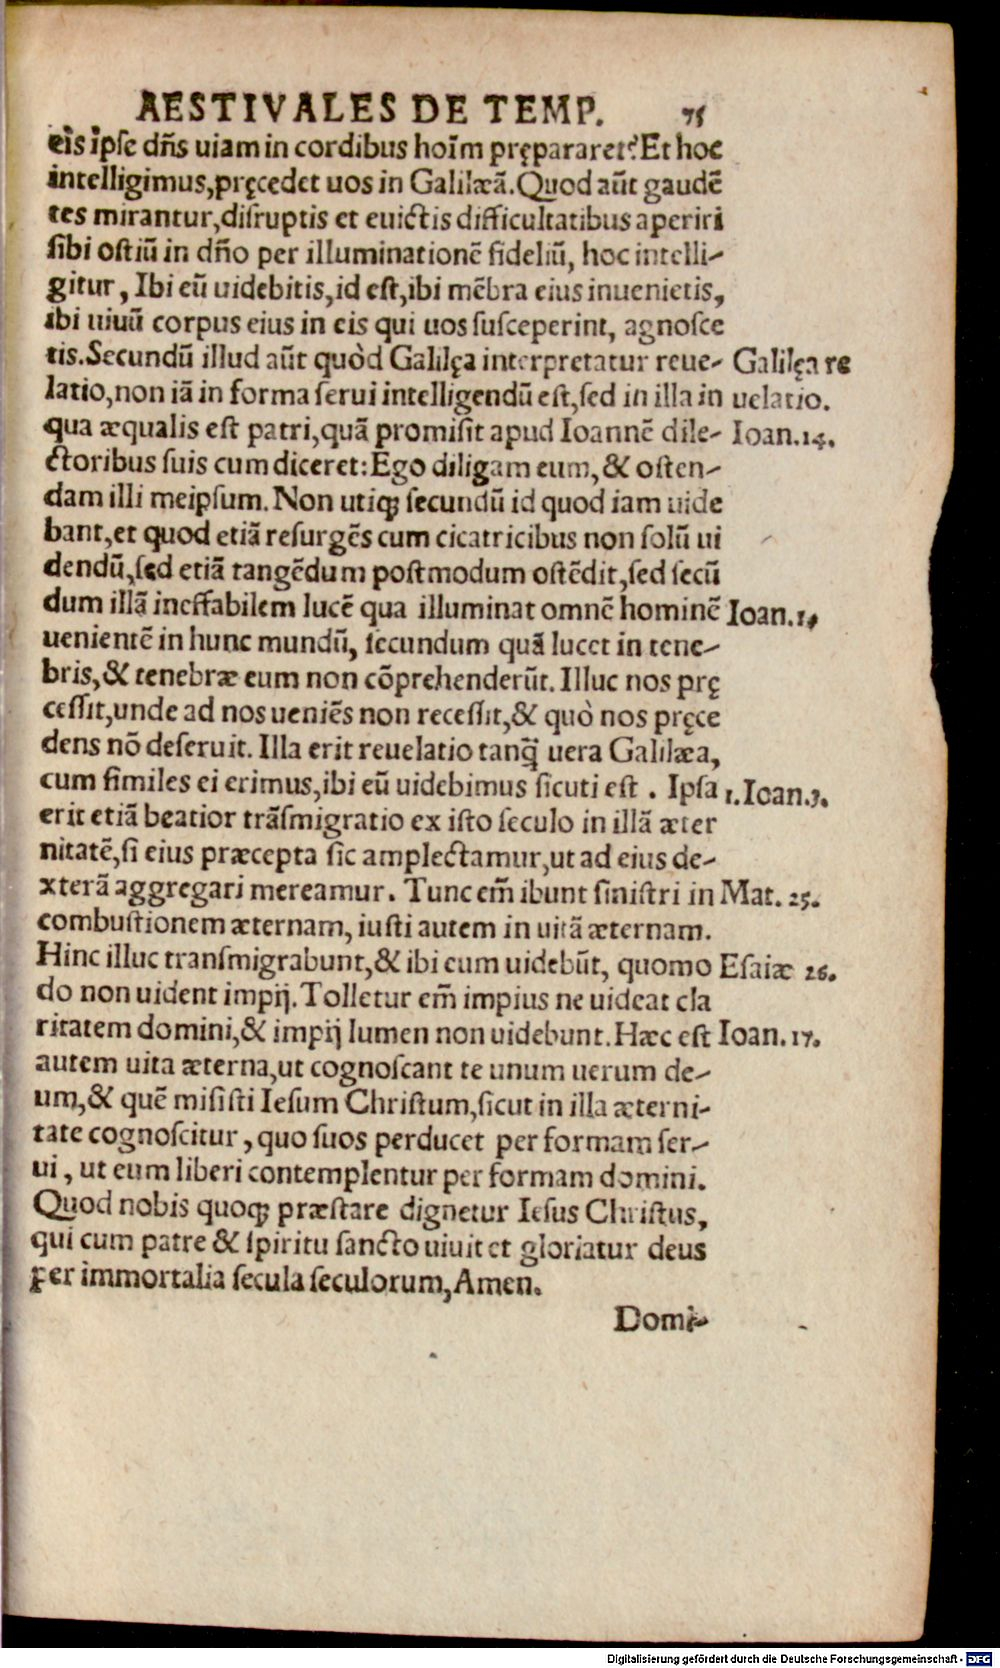 AESTIVALES DE TEMP. 75
eis ipse dn̄s uiam in cordibus hoīm pręparet? Et hoc
intelligimus, pręcedet uos in Galilæā. Quod aūt gaudē
tes mirantur, disruptis et euictis difficultatibus aperiri
sibi ostiū in dn̄o per illuminationē fideliū, hoc intelli-
gitur, Ibi eū uidebitis, id est, ibi mēbra eius inuenietis,
ibi uiuū corpus eius in eis qui uos susceperint, agnosce
tis. Secundū illud aūt quòd Galilęa interpretatur reue- Galilęa re
latio, non iā in forma serui intelligendū est, sed in illa in uelatio.
qua æqualis est patri, quā promisit apud Ioannē dile- Ioan. 14.
ctoribus suis cum diceret: Ego diligam eum, & osten-
dam illi meipsum. Non utiqꝫ secundū id quod iam uide
bant, et quod etiā resurgēs cum cicatricibus non solū ui
dendū, sed etiā tangēdum postmodum ostēdit, sed secū
dum illā ineffabilem lucē qua illuminat omnē hominē Ioan. 1.
uenientē in hunc mundū, secundum quā lucet in tene-
bris, & tenebræ eum non cōprehenderūt. Illuc nos prę
cessit, unde ad nos ueniēs non recessit, & quò nos pręce
dens nō deseruit. Illa erit reuelatio tanq̄ uera Galilæa,
cum similes ei erimus, ibi eū uidebimus sicuti est. Ipsa 1. Ioan. 3.
erit etiā beatior trāsmigratio ex isto seculo in illā æter
nitatē, si eius præcepta sic amplectamur, ut ad eius de-
xterā aggregari mereamur. Tunc em̄ ibunt sinistri in Mat. 25.
combustionem æternam, iusti autem in uitā æternam.
Hinc illuc transmigrabunt, & ibi eum uidebūt, quomo Esaiæ 26.
do non uident impij. Tolletur em̄ impius ne uideat cla
ritatem domini, & impij lumen non uidebunt. Hæc est Ioan. 17.
autem uita æterna, ut cognoscant te unum uerum de-
um, & quē misisti Iesum Christum, sicut in illa æterni-
tate cognoscitur, quo suos perducet per formam ser-
ui, ut eum liberi contemplentur per formam domini.
Quod nobis quoqꝫ præstare dignetur Iesus Christus,
qui cum patre & spiritu sancto uiuit et gloriatur deus
per immortalia secula seculorum, Amen.
Domi-
Digitalisierung gefördert durch die Deutsche Forschungsgemeinschaft - DFG